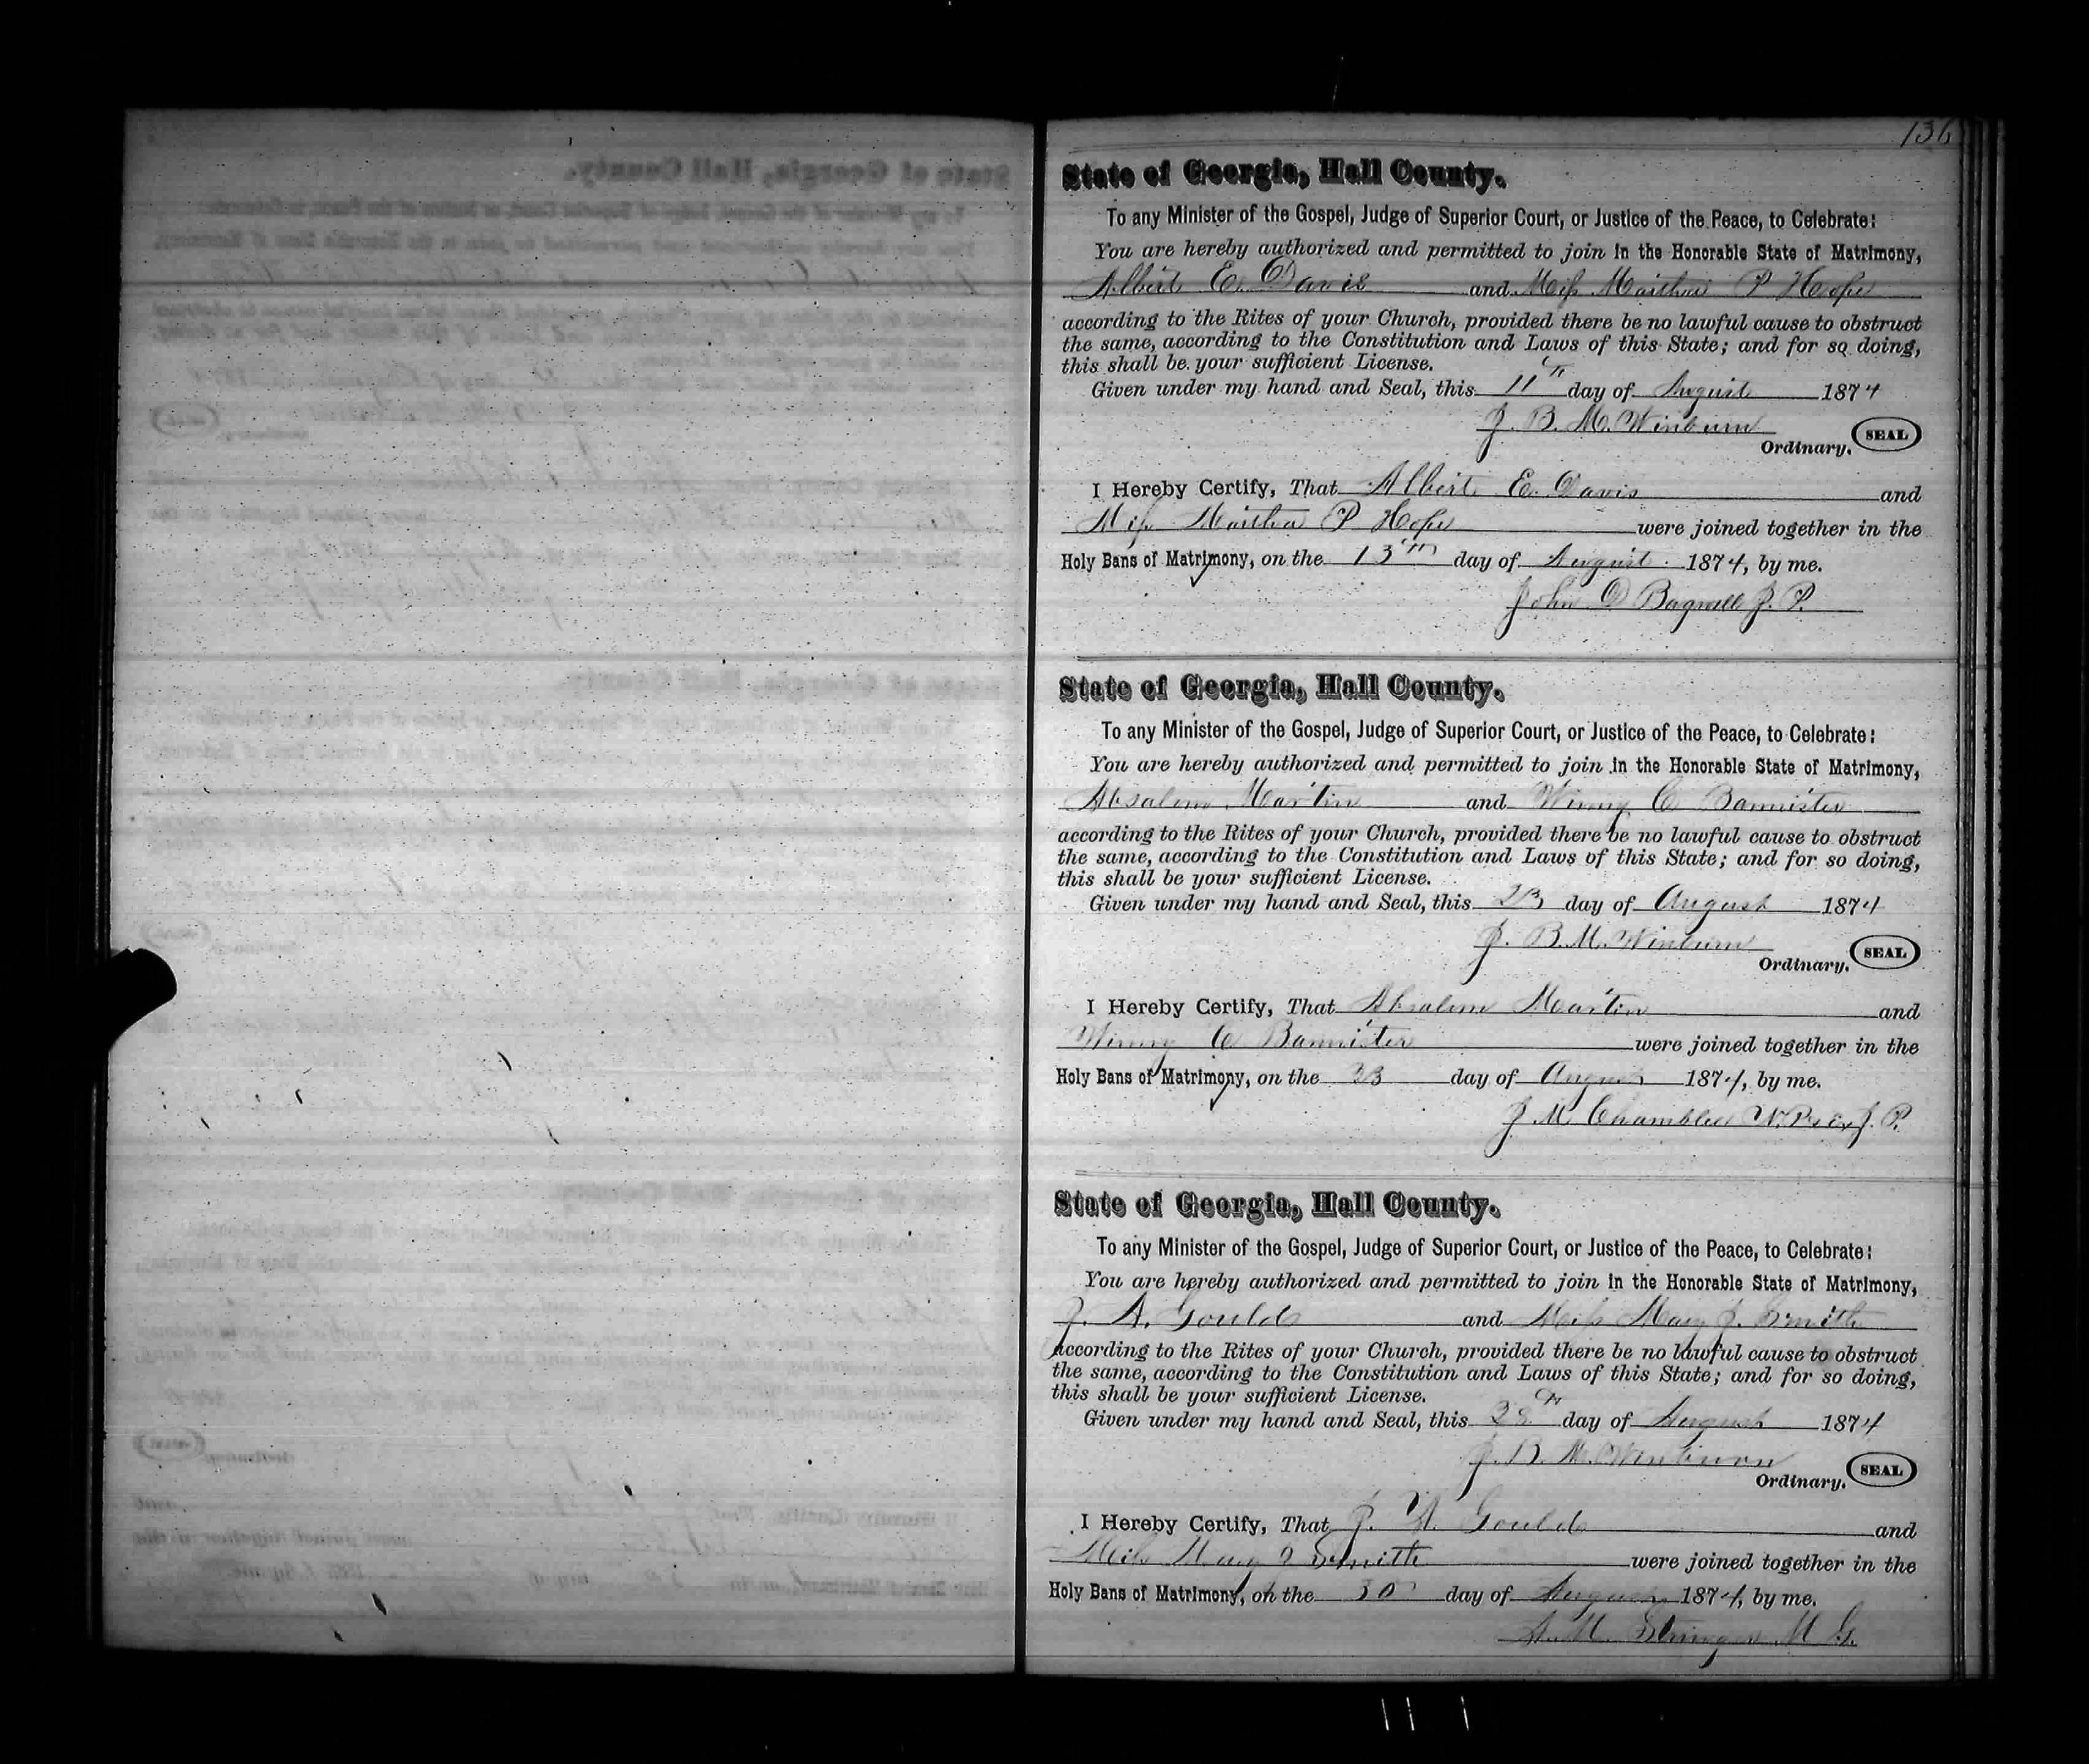 136
State of Georgia, Hall County.
To any Minister of the Gospel, Judge of Superior Court, or Justice of the Peace, to Celebrate:
You are hereby authorized and permitted to join in the Honorable State of Matrimony,
Albert E. Davis and Miss Martha P Hope
according to the Rites of your Church, provided there be no lawful cause to obstruct
the same, according to the Constitution and Laws of this State; and for so doing,
this shall be your sufficient License.
Given under my hand and Seal, this 11th day of August 1874
J. B. M. Winburn
Ordinary. SEAL
I Hereby Certify, That Albert E. Davis and
Miss Martha P Hope were joined together in the
Holy Bans of Matrimony, on the 13th day of August 1874, by me.
John D Bagwell J. P.
State of Georgia, Hall County.
To any Minister of the Gospel, Judge of Superior Court, or Justice of the Peace, to Celebrate:
You are hereby authorized and permitted to join in the Honorable State of Matrimony,
Absalom Martin and Winny C Bannister
according to the Rites of your Church, provided there be no lawful cause to obstruct
the same, according to the Constitution and Laws of this State; and for so doing,
this shall be your sufficient License.
Given under my hand and Seal, this 23 day of August 1874
J. B. M. Winburn
Ordinary. SEAL
I Hereby Certify, That Absalom Martin and
Winny C Bannister were joined together in the
Holy Bans of Matrimony, on the 23 day of August 1874, by me.
J. M. Chamblee N. P. & Ex J. P.
State of Georgia, Hall County.
To any Minister of the Gospel, Judge of Superior Court, or Justice of the Peace, to Celebrate:
You are hereby authorized and permitted to join in the Honorable State of Matrimony,
J. A. Gould and Miss Mary J. Smith
according to the Rites of your Church, provided there be no lawful cause to obstruct
the same, according to the Constitution and Laws of this State; and for so doing,
this shall be your sufficient License.
Given under my hand and Seal, this 28th day of August 1874
J. B. M. Winburn
Ordinary. SEAL
I Hereby Certify, That J. A. Gould and
Miss Mary J Smith were joined together in the
Holy Bans of Matrimony, on the 30 day of August 1874, by me.
A. M. Stringer M G.